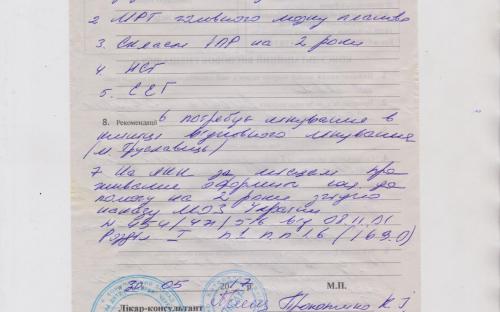 2 МРТ головного мозку планово
3. Скласти ІПР на 2 роки
4. НСГ
5. ЕЕГ
8. Рекомендації 6 потребує лікування в
клініці відновного лікування
(м. Трускавець)
7 На ЛКК за місцем про
живання оформити
помогу на 2 роки згідно
наказу МОЗ України
N 454/471/516 від 08.11.01
Розділ I п 1 п.п 1.6
30 05 2017 р М.П.
Лікар-консультант Прокопенко К. І.